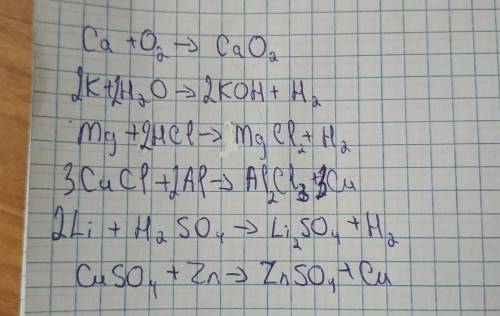 Ca + O₂ → CaO₂
2K + 2H₂O → 2KOH + H₂
Mg + 2HCl → MgCl₂ + H₂
3CuCl + 2Al → Al₂Cl₃ + 3Cu
2Li + H₂SO₄ → Li₂SO₄ + H₂
CuSO₄ + Zn → ZnSO₄ + Cu